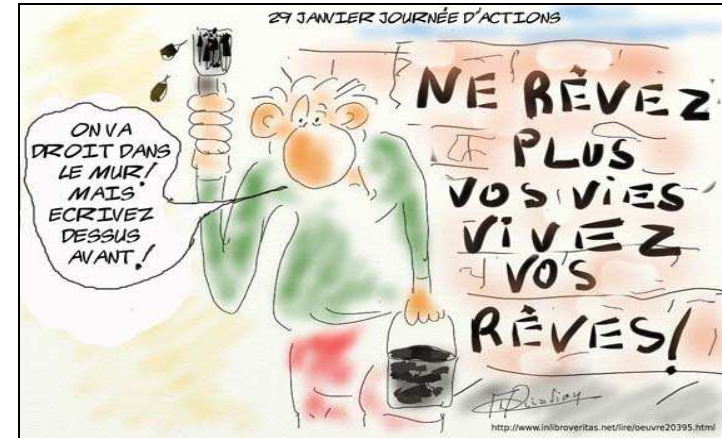 29 JANVIER JOURNÉE D'ACTIONS
ON VA
DROIT DANS
LE MUR!
MAIS
ECRIVEZ
DESSUS
AVANT!
NE RÊVEZ
PLUS
VOS VIES
VIVEZ
VOS
RÊVES!
http://www.inlibroveritas.net/lire/oeuvre20395.html